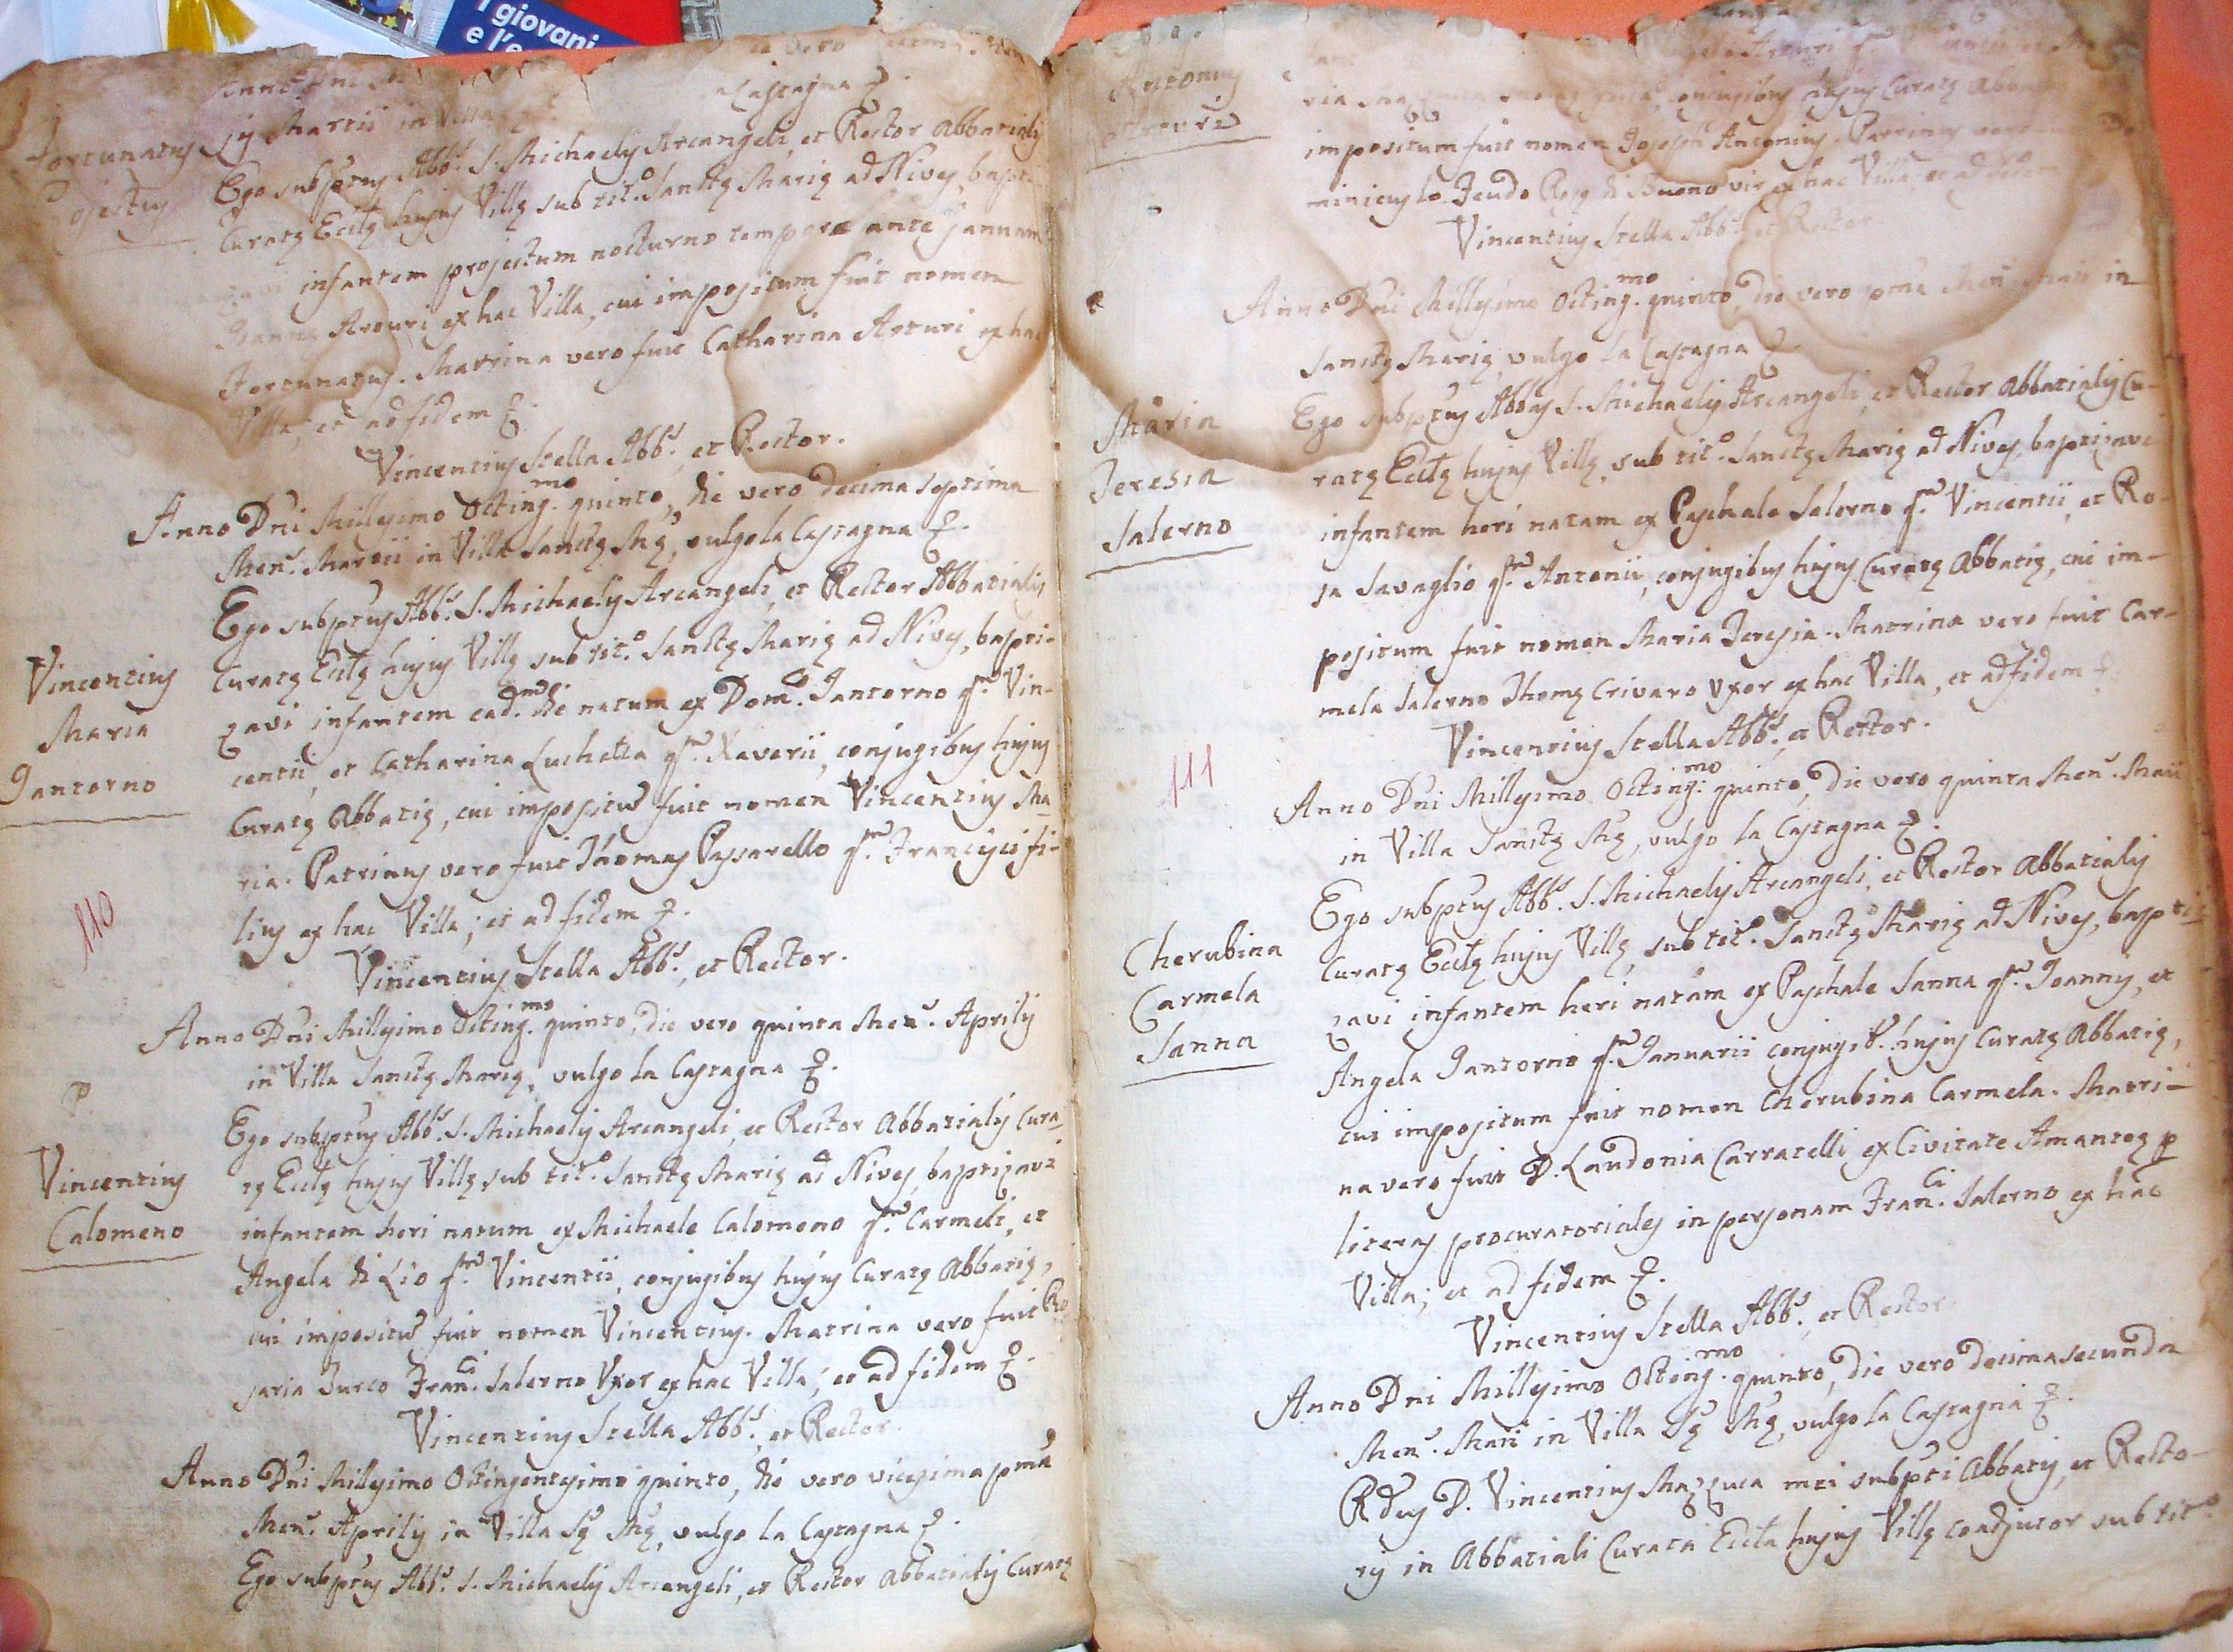 i giovani
e l'e
Fortunatus
Projectus
Anno Dni
Castagna &.
Martii in Villa
Ego subptus Abbs. S. Michaelis Arcangeli, et Rector Abbatialis
Curatę Ecclę hujus Villę sub tito. Sanctę Marię ad Nives, bapti
infantem projectum nocturno tempore ante januam
Joannis Arcuri ex hac Villa, cui impositum fuit nomen
Fortunatus. Matrina vero fuit Catharina Arcuri ex hac
Villa, et ad fidem &.
Vincentius Stella Abbs., et Rector.
Anno Dni Millesimo Octing.mo quinto, die vero decima septima
Mens. Martii in Villa Sanctę Mę, vulgo la Castagna &.
Vincentius
Maria
Jantorno
Ego subptus Abbs. S. Michaelis Arcangeli, et Rector Abbatialis
Curatę Ecclę hujus Villę sub tito. Sanctę Marię ad Nives, bapti-
zavi infantem ead.m die natum ex Dom.co Jantorno qm. Vin-
centii, et Catharina Luchetta qm. Xaverii, conjugibus hujus
Curatę Abbatię, cui impositū fuit nomen Vincentius Ma
ria. Patrinus vero fuit Thomas Passarello qm. Francisci fi-
lius ex hac Villa; et ad fidem &.
Vincentius Stella Abbs., et Rector.
110
Anno Dni Millesimo Octing.mo quinto, die vero quinta Mens. Aprilis
in Villa Sanctę Marię, vulgo la Castagna &.
P.
Vincentius
Calomeno
Ego subptus Abbs. S. Michaelis Arcangeli, et Rector Abbatialis Cura
tę Ecclę hujus Villę sub tito. Sanctę Marię ad Nives, baptizavi
infantem heri natum ex Michaele Calomeno qm. Carmeli, et
Angela di Lio qm. Vincentii, conjugibus hujus Curatę Abbatię,
cui impositū fuit nomen Vincentius. Matrina vero fuit Ro
saria Turco Fran.ci Salerno Uxor ex hac Villa; et ad fidem &.
Vincentius Stella Abbs., et Rector.
Anno Dni Millesimo Octingentesimo quinto, die vero vicesima pma
Mens. Aprilis in Villa Sę Mę, vulgo la Castagna &.
Ego subptus Abbs. S. Michaelis Arcangeli, et Rector Abbatialis Curatę
Antonius
Arcuri
conjugibus hujus Curatę
impositum fuit nomen Joseph Antonius. Patrinus vero Do
minicus lo Feudo Rosę di Buono vir ex hac Villa et ad fidem
Vincentius Stella Abbs. et Rector
Anno Dni Millesimo Octing.mo quinto, die vero pma Mens. Maii in
Sanctę Marię, vulgo la Castagna &.
Maria
Teresia
Salerno
Ego subptus Abbas S. Michaelis Arcangeli, et Rector Abbatialis Cu-
ratę Ecclę hujus Villę, sub tito. Sanctę Marię ad Nives, baptizavi
infantem heri natam ex Paschale Salerno qm. Vincentii, et Ro-
sa Savaglio qm. Antonii, conjugibus hujus Curatę Abbatię, cui im-
positum fuit nomen Maria Teresia. Matrina vero fuit Car-
mela Salerno Thomę Crivaro Uxor ex hac Villa, et ad fidem &.
Vincentius Stella Abbs., et Rector.
111
Anno Dni Millesimo Octing.mo quinto, die vero quinta Mens. Maii
in Villa Sanctę Mę, vulgo la Castagna &.
Cherubina
Carmela
Sanna
Ego subptus Abbs. S. Michaelis Arcangeli, et Rector Abbatialis
Curatę Ecclę hujus Villę, sub tito. Sanctę Marię ad Nives, bapti
zavi infantem heri natam ex Paschale Sanna qm. Joannis, et
Angela Jantorno qm. Januarii conjugib. hujus Curatę Abbatię,
cui impositum fuit nomen Cherubina Carmela. Matri-
na vero fuit D. Laudonia Carratelli ex Civitate Amanteę p
literas procuratoriales in personam Fran.ci Salerno ex hac
Villa; et ad fidem &.
Vincentius Stella Abbs., et Rector.
Anno Dni Millesimo Octing.mo quinto, die vero decimasecunda
Mens. Maii in Villa Sę Mę, vulgo la Castagna &.
Rdus D. Vincentius Mazzuca mei subpti Abbatis, et Recto-
ris in Abbatiali Curata Eccla hujus Villę coadjutor sub tito.